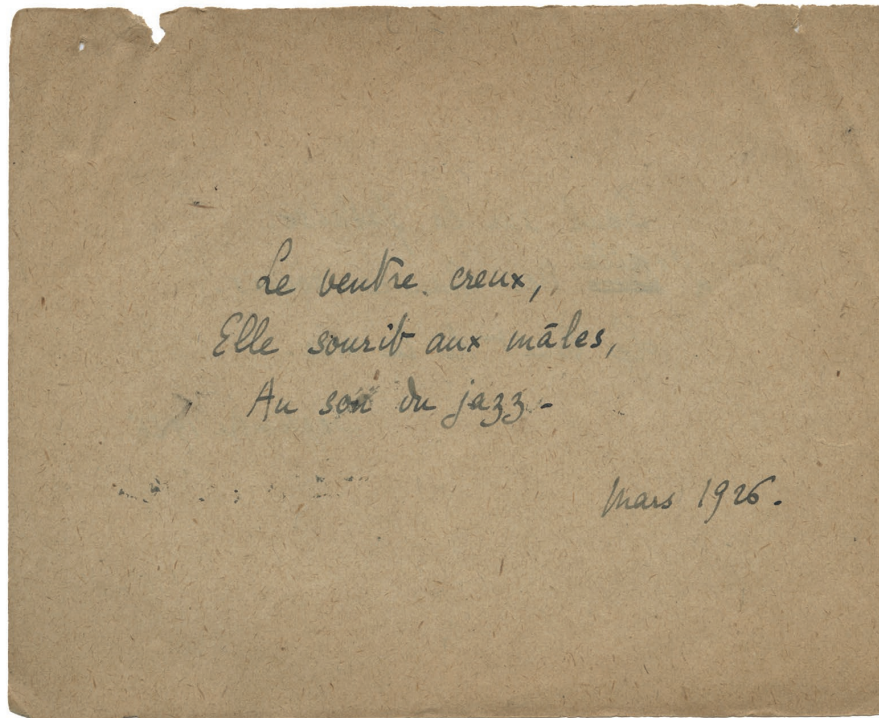 Le ventre creux,
Elle sourit aux mâles,
Au son du jazz -
Mars 1926.